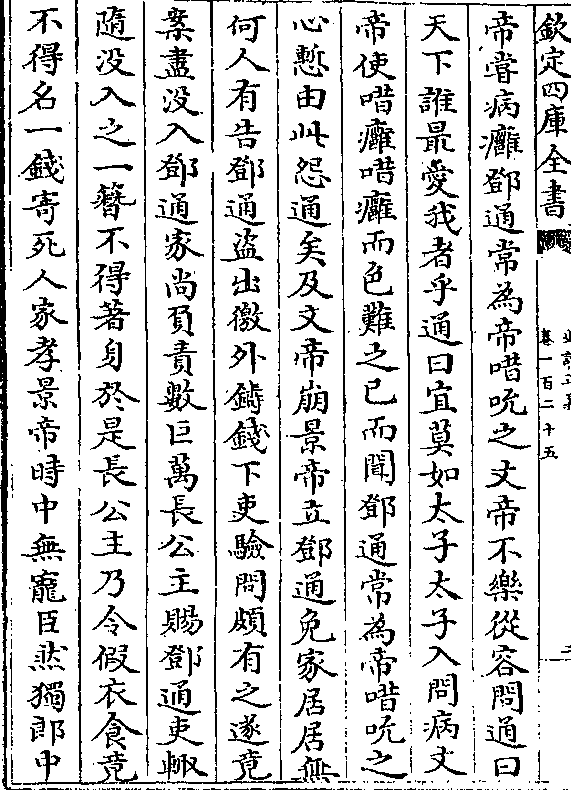 欽定四庫全書
史記正義
卷一百二十五
二
帝嘗病癰鄧通常為帝唶吮之文帝不樂從容問通曰
天下誰最愛我者乎通曰宜莫如太子太子入問病文
帝使唶癰唶癰而色難之已而聞鄧通常為帝唶吮之
心慙由此怨通矣及文帝崩景帝立鄧通免家居居無
何人有告鄧通盜出徼外鑄錢下吏驗問頗有之遂竟
案盡没入鄧通家尚負責數巨萬長公主賜鄧通吏輙
隨没入之一簪不得著身於是長公主乃令假衣食竟
不得名一錢寄死人家孝景帝時中無寵臣然獨郎中